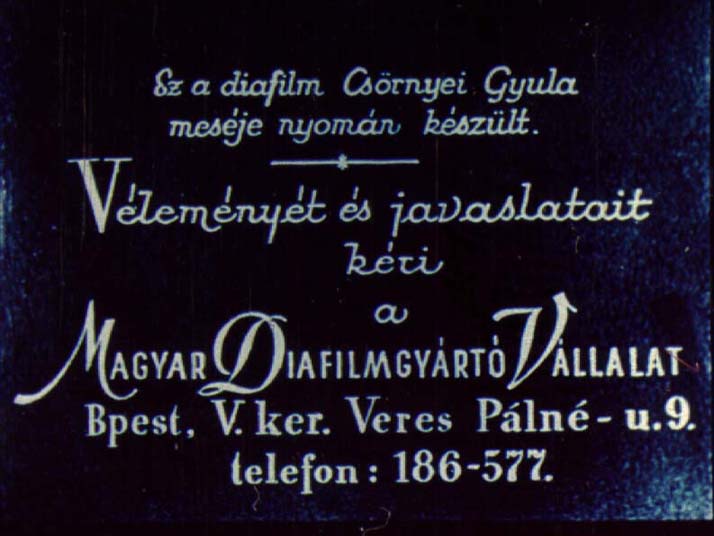 Ez a diafilm Csörnyei Gyula
meséje nyomán készült.
Véleményét és javaslatait
kéri
a
MAGYAR DIAFILMGYÁRTÓ VÁLLALAT
Bpest, V. ker. Veres Pálné-u. 9.
telefon: 186-577.